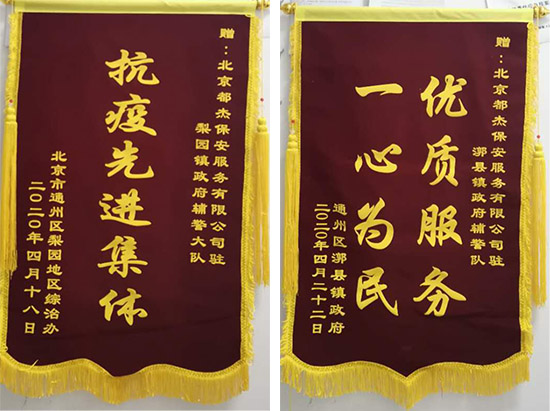 赠：北京都杰保安服务有限公司驻
梨园镇政府辅警大队
抗疫先进集体
北京市通州区梨园地区综治办
二〇二〇年四月十八日
赠：北京都杰保安服务有限公司驻
漷县镇政府辅警队
优质服务
一心为民
通州区漷县镇政府
二〇二〇年四月二十二日